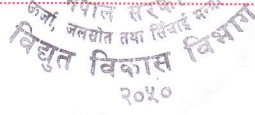 नेपाल सरकार
ऊर्जा, जलस्रोत तथा सिंचाई
विद्युत विकास विभाग
२०५०